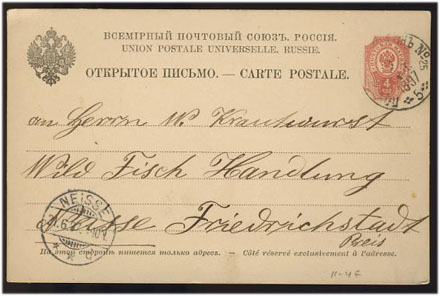 ВСЕМІРНЫЙ ПОЧТОВЫЙ СОЮЗЪ. РОССІЯ.
UNION POSTALE UNIVERSELLE. RUSSIE.
ОТКРЫТОЕ ПИСЬМО. — CARTE POSTALE.
an Herrn W. Krautwurst
Wild Fisch Handlung
NEISSE
Neisse Friedrichstadt
Reis
На этой сторонѣ пишется только адресъ. — Côté réservé exclusivement à l'adresse.